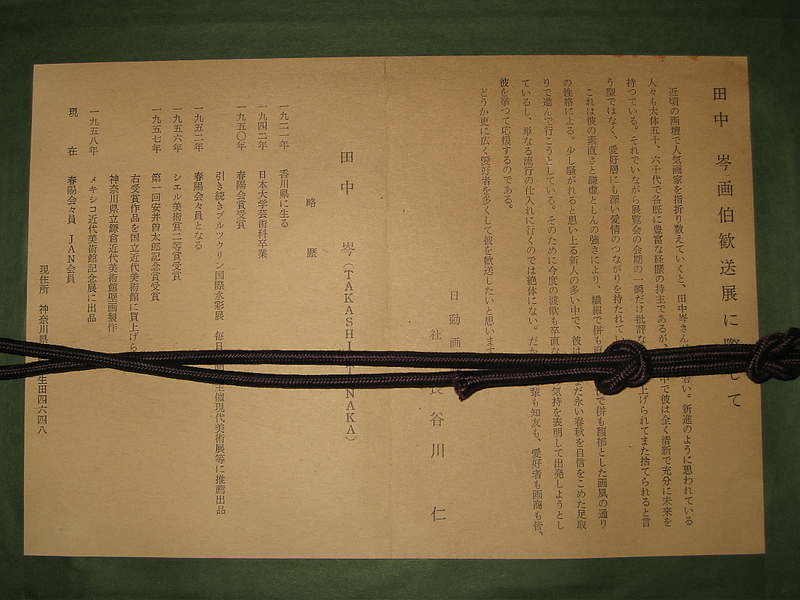 田中岑画伯歓送展に際して
近頃の画壇で人気画家を指折り数えていくと、田中岑さん 若い。新進のように思われている
人々も大体五十、六十代で各既に豊富な経歴の持主であるが、 中で彼は全く清新で充分に未来を
持つている。それでいながら展覧会の会期の一瞬だけ批評な 上げられてまた捨てられると言
う型ではなく、愛好層にも深い愛情のつながりを持たれてい
これは彼の素直さと謙虚としんの強さにより、繊細で併も 併も馥郁とした画風の通り
の性格による。少し騒がれると思い上る新人の多い中で、彼は まだ永い春秋を自信をこめた足取
りで進んで行こうとしている。そのために今度の渡欧も卒直な 気持を表明して出発しようとし
ているし、単なる流行の仕入れに行くのでは絶体にない。だか 輩も知友も、愛好者も画商も皆、
彼を挙つて応援するのである。
どうか更に広く愛好者を多くして彼を歓送したいと思います
日動画
社 長谷川仁
田中岑(TAKASHI TANAKA)
略歴
一九二一年 香川県に生る
一九四二年 日本大学芸術科卒業
一九五〇年 春陽会賞受賞
引き続きブルックリン国際水彩展 毎日 主催現代美術展等に推薦出品
一九五二年 春陽会々員となる
一九五六年 シエル美術賞二等賞受賞
一九五七年 第一回安井曽太郎記念賞受賞
右受賞作品を国立近代美術館に買上げら
神奈川県立鎌倉近代美術館壁画製作
一九五八年 メキシコ近代美術館記念展に出品
現在 春陽会々員 JAN会員
現住所 神奈川県 生田四六四八